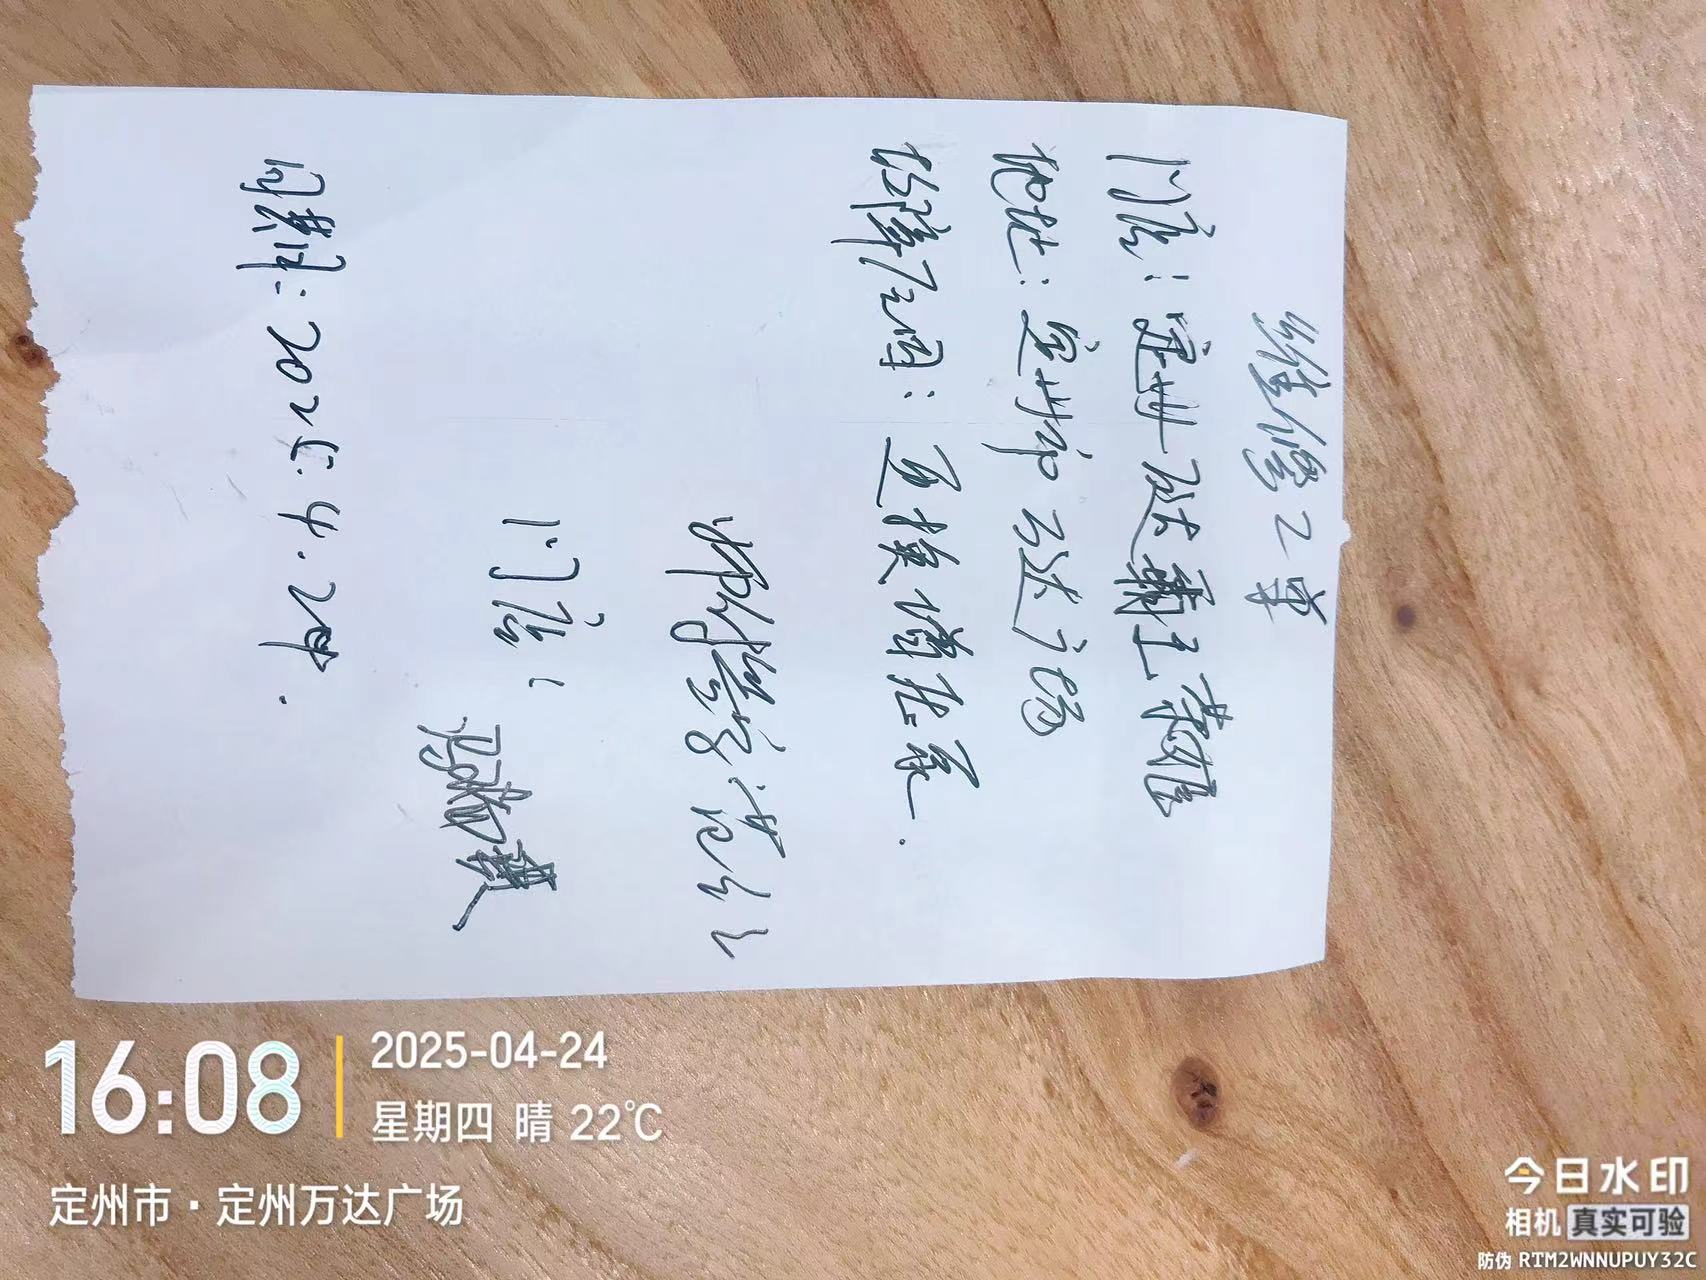 维修工单
门店：定州万达霸王茶姬
地址：定州市万达广场
故障原因：更换增压泵.
门店：
时期：2025.4.24.
16:08
2025-04-24
星期四 晴 22℃
定州市·定州万达广场
今日水印
相机 真实可验
防伪 RTM2WNNUPUY32C